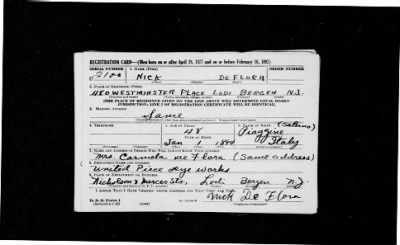 REGISTRATION CARD—(Men born on or after April 28, 1877 and on or before February 16, 1897)
SERIAL NUMBER 1. NAME (Print) ORDER NUMBER
NICK DE FLORA
2. PLACE OF RESIDENCE (Print)
480 WESTMINSTER PLACE LODI BERGEN N.J.
[THE PLACE OF RESIDENCE GIVEN ON THE LINE ABOVE WILL DETERMINE LOCAL BOARD
JURISDICTION; LINE 2 OF REGISTRATION CERTIFICATE WILL BE IDENTICAL]
3. MAILING ADDRESS
Same
4. TELEPHONE 5. AGE IN YEARS 6. PLACE OF BIRTH (Salerno)
48 Piaggine
DATE OF BIRTH
Jan 1 1894 Italy
7. NAME AND ADDRESS OF PERSON WHO WILL ALWAYS KNOW YOUR ADDRESS
Mrs Carmela De Flora (Same address)
8. EMPLOYER'S NAME AND ADDRESS
United Piece Dye Works
9. PLACE OF EMPLOYMENT OR BUSINESS
Mercer Sts, Lodi Bergen N.J.
I AFFIRM THAT I HAVE VERIFIED ABOVE ANSWERS AND THAT THEY ARE TRUE.
D.S.S. Form 1
Nick De Flora